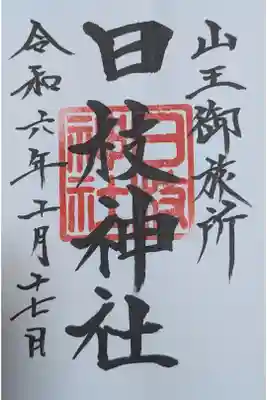 山王御旅所
日枝神社
日枝神社
令和六年十一月十七日